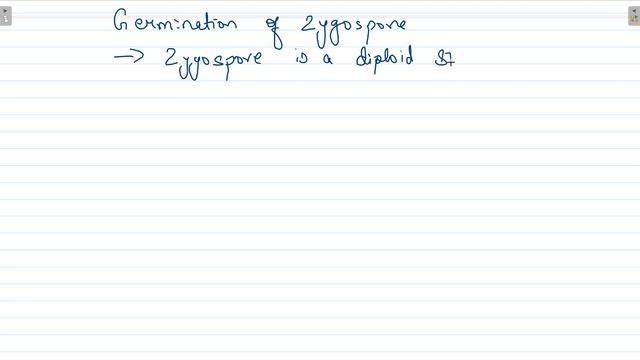 Germination of Zygospore
→ Zygospore is a diploid st